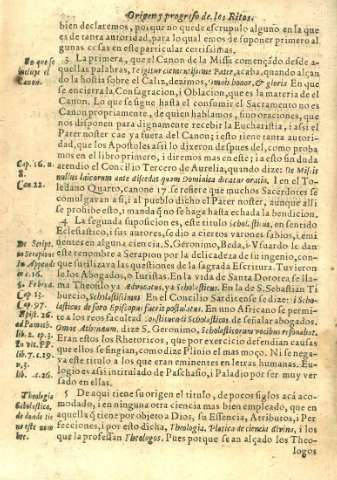 Origen y progreso de los Ritos.
bien declaremos, porque no quede escrupulo alguno en la que
es de tanta autoridad, para lo qual emos de suponer primero al
gunas cosas en este particular certisimas.
En que se
incluye el
Canon.
3 La primera, que el Canon de la Missa començãdo desde a-
quellas palabras, Te igitur clementissime Pater, acaba, quando alçan
do la hostia sobre el Caliz, dezimos, omnis honor, & gloria En que
se encierra la Consagracion, i Oblacion, que es la materia de el
Canon. Lo que se sigue hasta el consumir el Sacramento no es
Canon propriamente, de quien hablamos, sino oraciones, que
nos disponen para dignamente recebir la Eucharistia, i assi el
Pater noster cae ya fuera del Canon; i esto tiene tanta autori-
dad, que los Apostoles assi lo dizeron despues del, como proba
mos en el libro primero, i diremos mas en este; i a esto sin duda
atendio el Concilio Tercero de Aurelia, quando dize: De Missis
nullus laicorum ante discedat quam Dominica dicatur oratio. I en el To-
Cap. 16. n.
8.
Can 22.
ledano Quarto, canone 17. se refiere que muchos Sacerdotes se
comulgavan assi, i al pueblo dicho el Pater noster, aunque alli
se prohibe esto, i mandã q̃ no se haga hasta echada la bendicion.
4 La segunda suposicion es, este titulo Scholasticus, en sentido
Eclesiastico, i sus autores, se dio a ciertos varones sabios, i emi-
nentes en alguna ciencia. S. Geronimo, Beda, i Usuardo le dan
este renombre a Serapion por la delicadeza de su ingenio, con-
que sutilizava las questiones de la sagrada Escritura. Tuvieron
le los Abogados, o Iuristas. En la vida de Santa Dorotea se lla-
ma Theofilo ya Advocatus, ya Scholasticus. En la de S. Sebastian Ti
burcio, Scholasticissimus En el Concilio Sardicense se dize: i Scho-
lasticus de foro Episcopus fuerit postulatus. En uno Africano se permi-
te a los reos facultad Scholasticis de señalar abogados.
Omne Athenæum, dize S. Geronimo, Scholasticorum vocibus resonabat.
Eran estos los Rhetoricos, que por exercicio defendian causas
que ellos se fingian, como dize Plinio el mas moço. Ni se nega-
va este titulo a los que eran eminentes en letras humanas. Eu-
logio es assi intitulado de Paschasio, i Paladio por ser muy ver
sado en ellas.
De Script.
in Appendi
ce c. 16.
6. Febrer.
Cap 13.
Cap. 97.
Epist. 26.
ad Pamach.
lib. 2. ep. 3.
lib. 7. c. 19.
n. 3.
lib. c. 26.
5 De aqui tiene su origen el titulo, de pocos siglos acà aco-
modado, i en ninguna otra ciencia mas bien empleado, que en
aquella q̃ tiene por objeto a Dios, su Essencia, Atributos, i Per
fecciones, i por esto dicha, Theologia, Platica de ciencia divina, i los
que la professan Theologos. Pues porque se an alçado los Theo-
logos
Theologia
Scholastica,
de donde tie
ne este nom
bre.